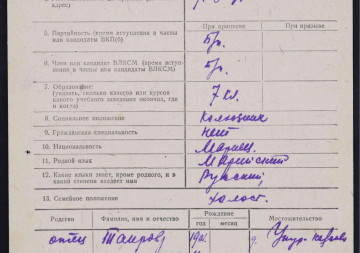 адрес)
При призыве
5. Партийность (время вступления в члены или кандидаты ВКП(б)
б/п.
6. Член или кандидат ВЛКСМ (время вступления в члены или кандидаты ВЛКСМ)
б/п.
7. Образование: (указать, сколько классов или курсов какого учебного заведения окончил, где и когда)
7 кл.
8. Социальное положение
Колхозник
9. Гражданская специальность
нет
10. Национальность
Мариец.
11. Родной язык
Марийский
12. Какие языки знает, кроме родного, и в какой степени владеет ими
Русский,
13. Семейное положение
холост.
Родство Фамилия, имя и отчество Рождение Местожительство
год месяц
отец Таиров